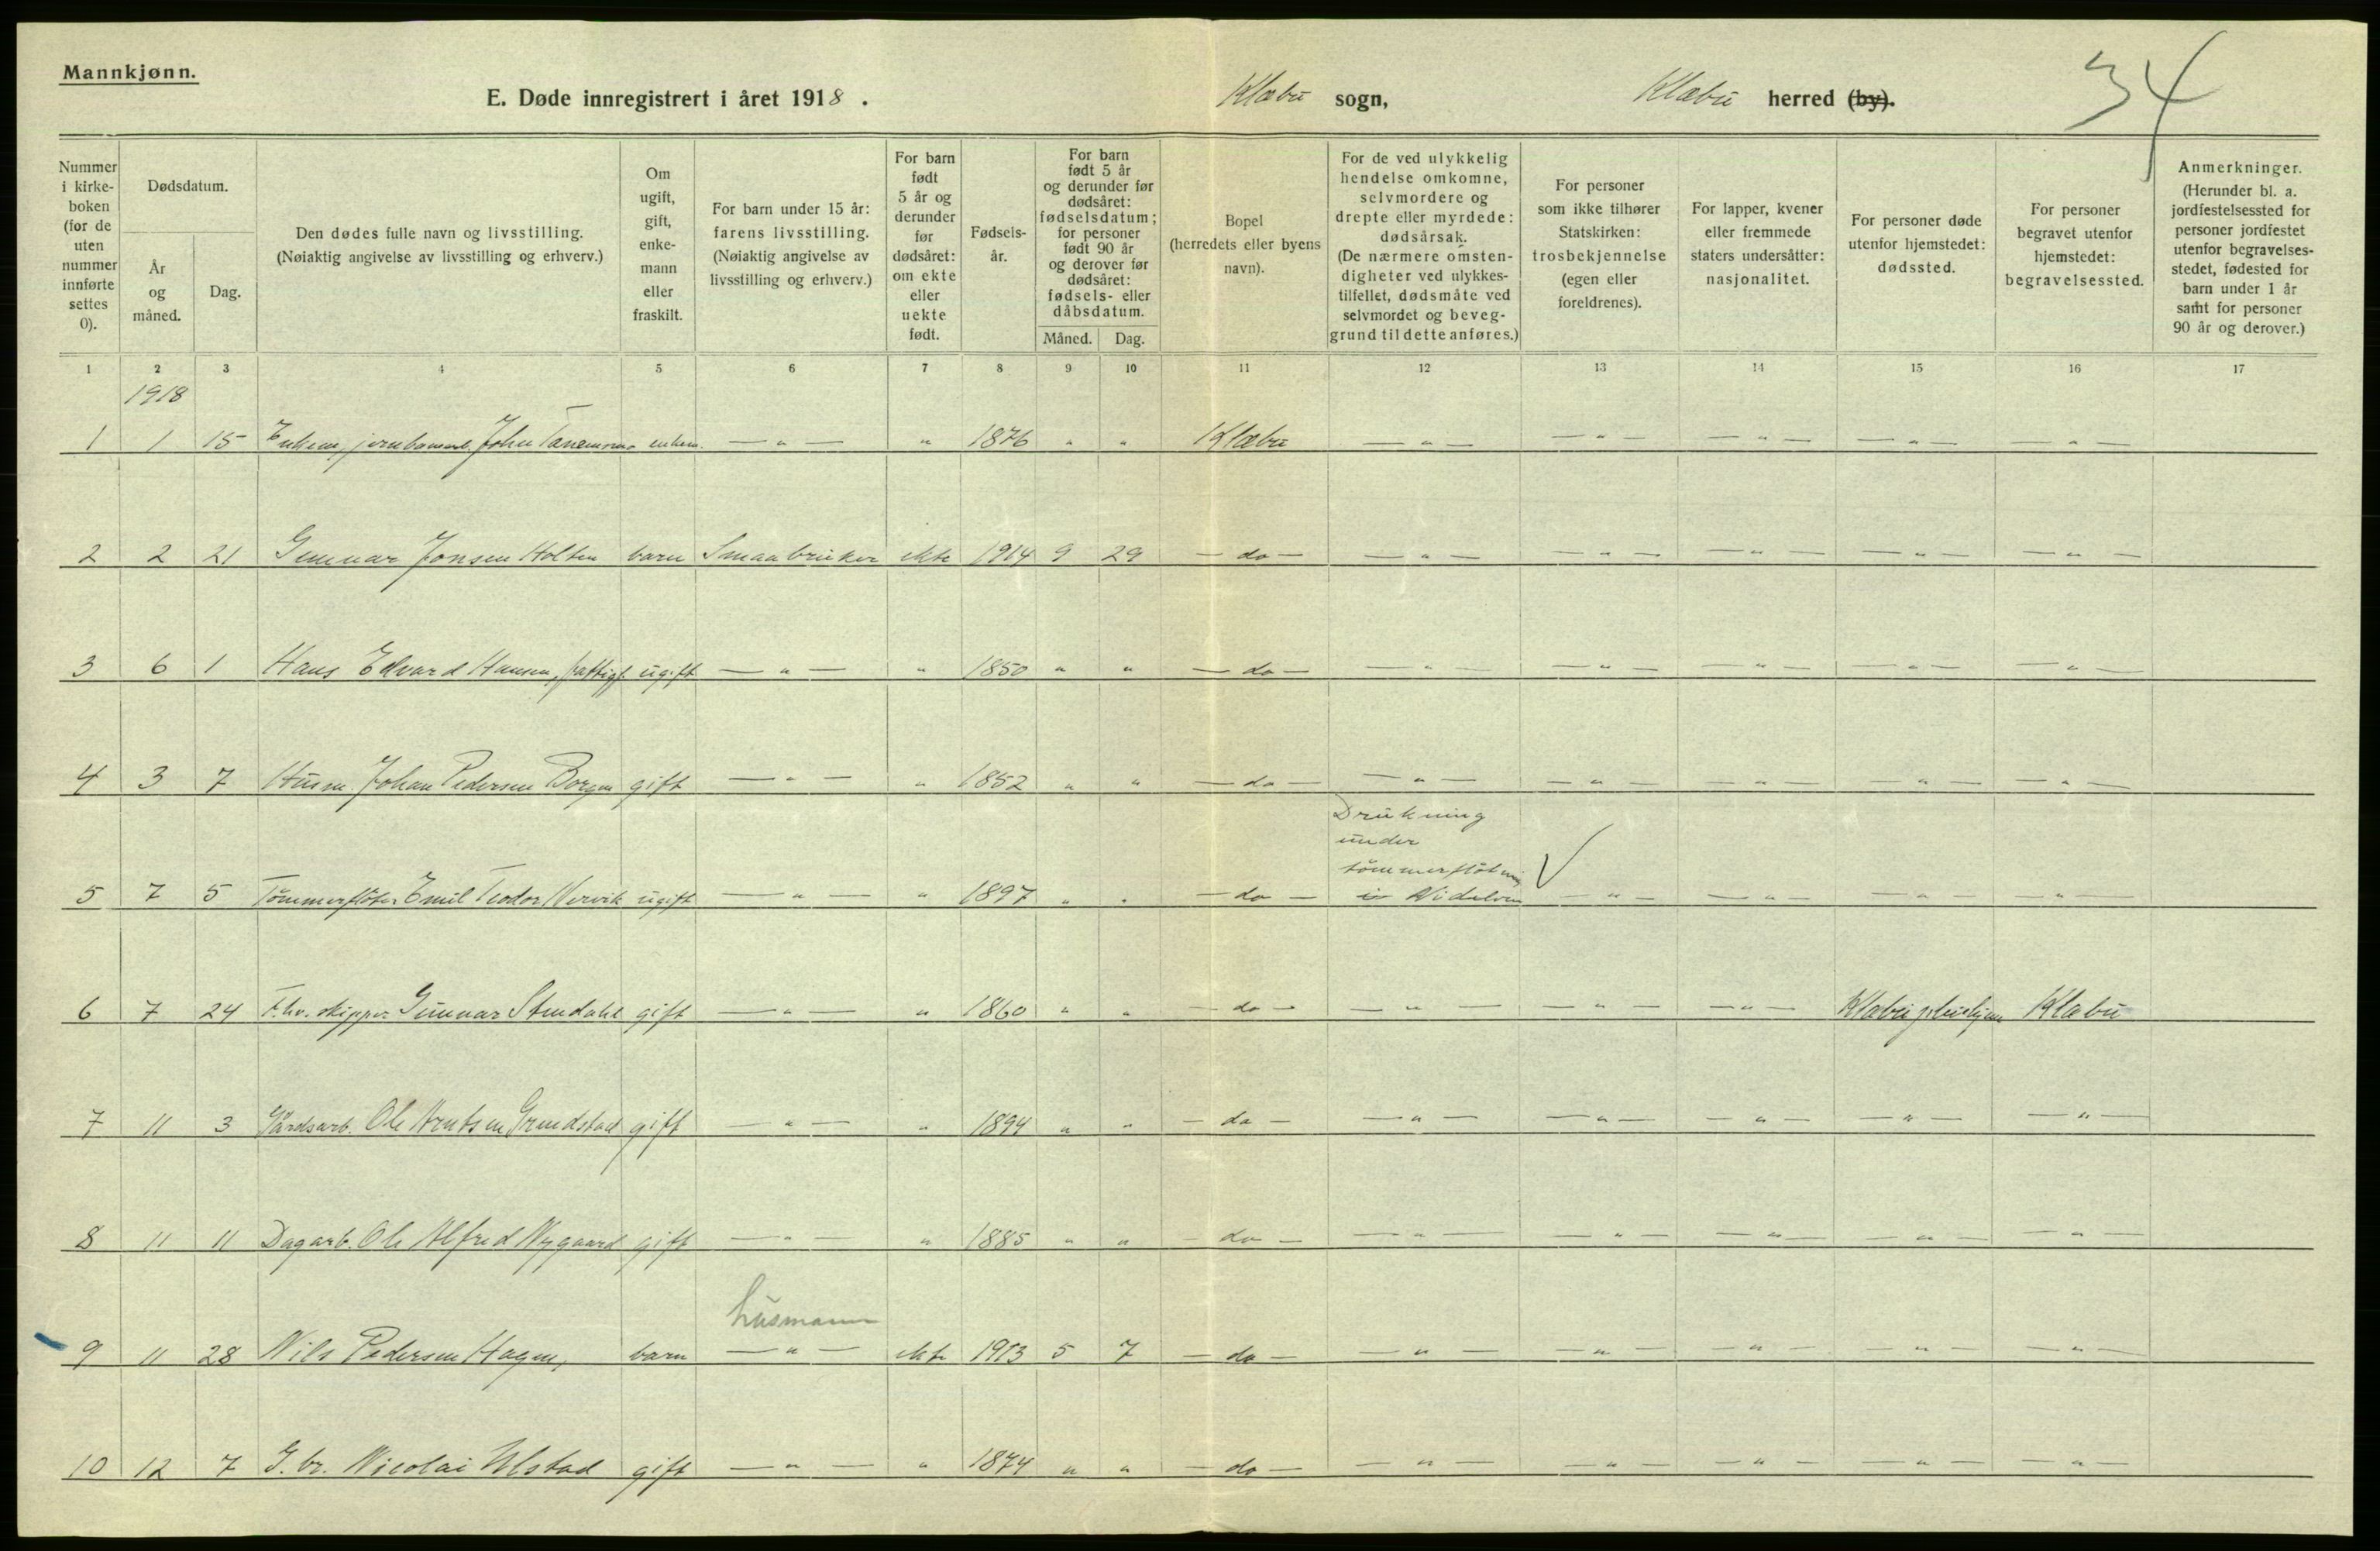 Mannkjønn.
E. Døde innregistrert i året 1918. Klæbu sogn, Klæbu herred (by). 34
Nummer i kirke-boken (for de uten nummer innførte settes 0).
Dødsdatum.
År og måned.
Dag.
Den dødes fulle navn og livsstilling.
(Nøiaktig angivelse av livsstilling og erhverv.)
Om ugift, gift, enke-mann eller fraskilt.
For barn under 15 år: farens livsstilling. (Nøiaktig angivelse av livsstilling og erhverv.)
For barn født 5 år og derunder før dødsåret: om ekte eller uekte født.
Fødsels-år.
For barn født 5 år og derunder før dødsåret: fødselsdatum; for personer født 90 år og derover før dødsåret: fødsels- eller dåbsdatum.
Måned. Dag.
Bopel (herredets eller byens navn).
For de ved ulykkelig hendelse omkomne, selvmordere og drepte eller myrdede: dødsårsak. (De nærmere omsten-digheter ved ulykkes-tilfellet, dødsmåte ved selvmordet og beveg-grund til dette anføres.)
For personer som ikke tilhører Statskirken: trosbekjennelse (egen eller foreldrenes).
For lapper, kvener eller fremmede staters undersåtter: nasjonalitet.
For personer døde utenfor hjemstedet: dødssted.
For personer begravet utenfor hjemstedet: begravelsessted.
Anmerkninger. (Herunder bl. a. jordfestelsessted for personer jordfestet utenfor begravelses-stedet, fødested for barn under 1 år samt for personer 90 år og derover.)
1 2 3 4 5 6 7 8 9 10 11 12 13 14 15 16 17
1918
1 1 15 Enkem, John enkem. — " — " 1876 " " Klæbu — " — — " — — " — — " — — " —
2 2 21 Gunnar Jonsen Holten barn Smaabruker ekte 1914 9 29 — do — — " — — " — — " — — " — — " —
3 6 1 Hans Edvard Hansen, fattigf. ugift — " — " 1850 " " — do — — " — — " — — " — — " — — " —
4 3 7 Husm. Johan Pedersen Borgen gift — " — " 1852 " " — do — — " — — " — — " — — " — — " —
Drukning
under
tømmerfløtning
5 7 5 Tømmerfløter Emil Teodor ugift — " — " 1897 " " — do — in Nidelven — " — — " — — " — — " —
6 7 24 F.hv. skipper Gunnar Stendahl gift — " — " 1860 " " — do — — " — — " — — " — Klæbu pleiehjem Klæbu
7 11 3 Gårdsarb. Ole Arntsen Grendstad gift — " — " 1894 " " — do — — " — — " — — " — — " — — " —
8 11 11 Dagarb. Ole Alfred Nygaard gift — " — " 1885 " " — do — — " — — " — — " — — " — — " —
husmann
9 11 28 Nils Pedersen Hagen, barn — " — ekte 1913 5 7 — do — — " — — " — — " — — " — — " —
10 12 7 G.br. Nicolai Ulstad gift — " — " 1874 " " — do — — " — — " — — " — — " — — " —